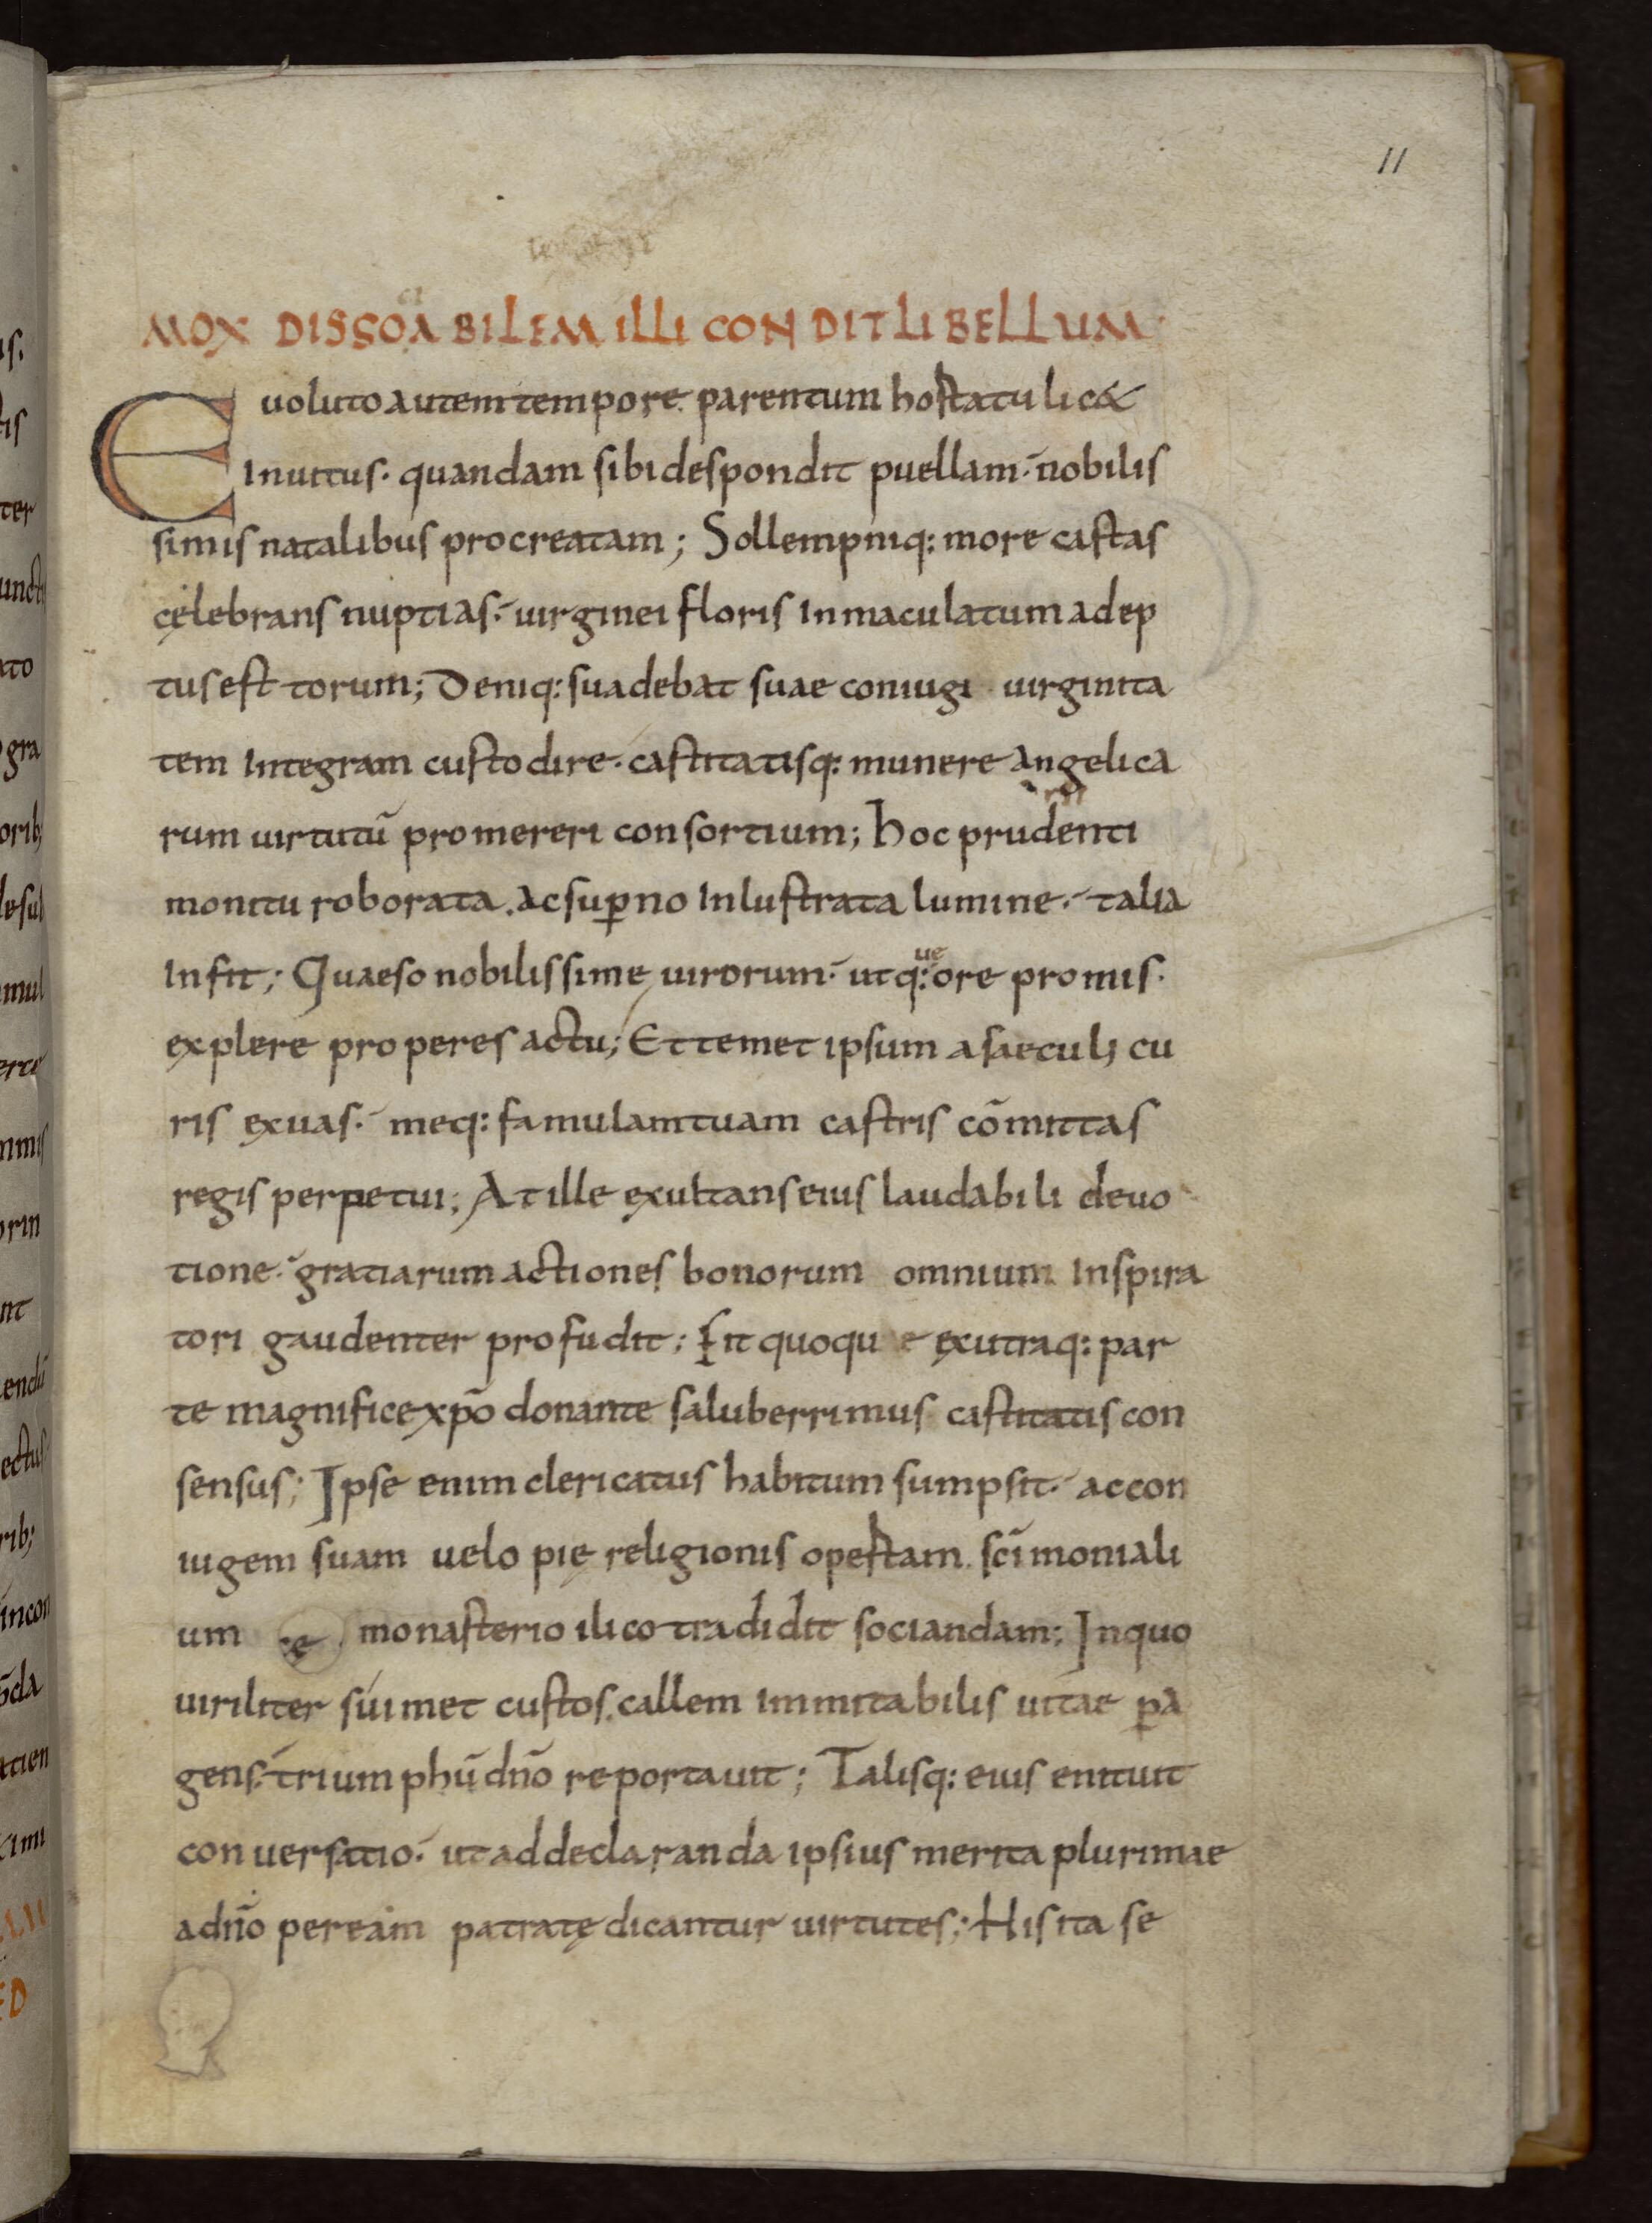 11
MOX DISSOCIABILEM ILLI CONDIT LIBELLUM·
Euoluto autem tempore. parentum hostatu lic&
Inuitus· quandam sibi despondit puellam· nobilis
simis natalibus procreatam; Sollempniq: more castas
cęlebrans nuptias· uirginei floris Inmaculatum adep
tus est torum; Deniq: suadebat suae coniugi uirginita
tem Integram custodire· castitatisq: munere angelica
rum uirtutū promereri consortium; Hoc prudenti
monitu roborata. ac sup̄no Inlustrata lumine· talia
Infit; Quaeso nobilissime uirorum· ut q:ue ore promis·
explere properes actu; Et temet ipsum a saeculi cu
ris exuas· meq: famulam tuam castris cōmittas
regis perpetui; At ille exultans eius laudabili deuo
tione· gratiarum actiones bonorum omnium Inspira
tori gaudenter profudit; Fit quoque ex utraq: par
te magnifice xp̄o donante saluberrimus castitatis con
sensus; Ipse enim clericatus habitum sumpsit· ac con
iugem suam uelo pię religionis opertam. sc̄imoniali
um monasterio ilico tradidit sociandam; In quo
uiriliter sui met custos. callem immitabilis uitae p̄a
gens· triumphū dn̄o reportauit; Talisq: eius enituit
conuersatio· ut ad declaranda ipsius merita plurimae
a dn̄o per eam patratę dicantur uirtutes; His ita se